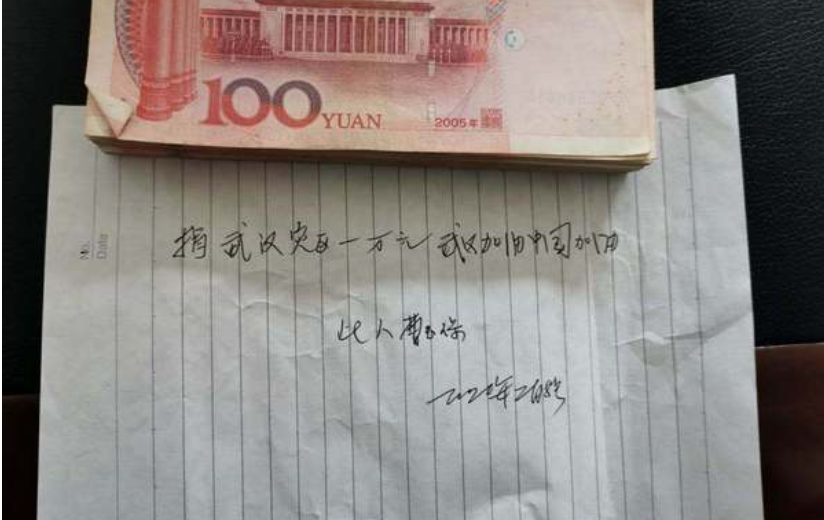 100 YUAN 2005年
No.
Date
捐武汉灾区一万元 武汉加油中国加油
此人曹玉保
二〇二〇年二月5号